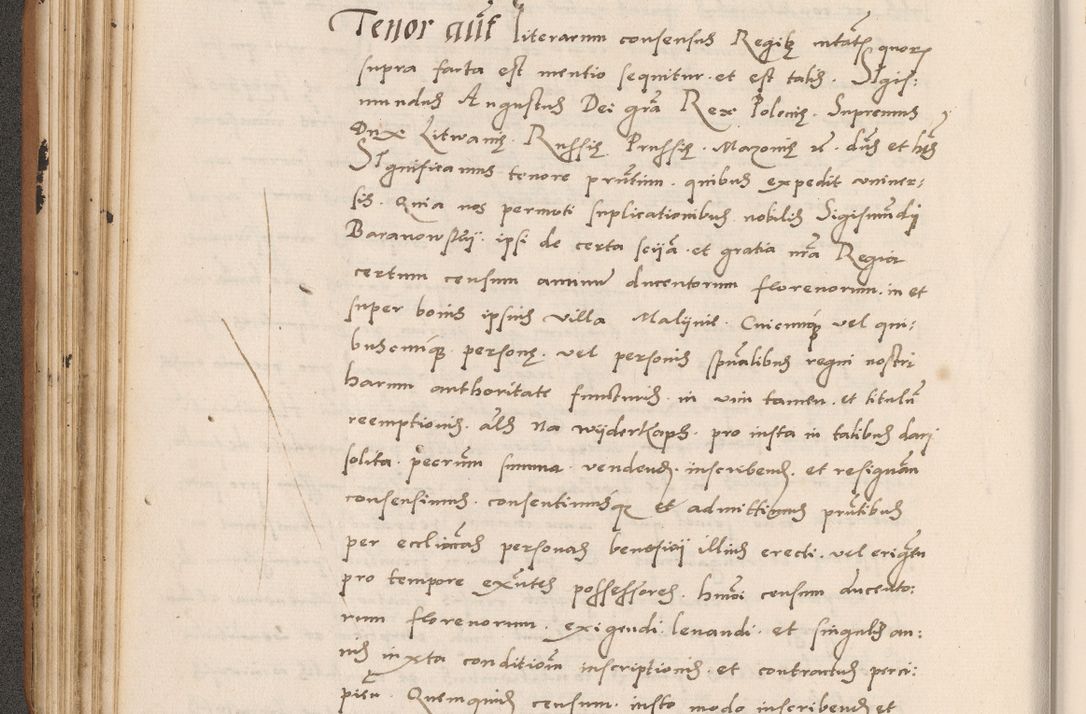 Tenor aūt literarum consensus Regiȩ mtatȩ quorȝ
supra facta est mentio sequitur. et est talis. Sigis:
mundus Augustus Dei grā Rex Polonie. Supremus
Dux Litwanie. Russie. Prussie. Mazovie ꝛc. dūs et hęs
Significamus tenore pn̄tium. quibus expedit univer:
sis. Quia nos permoti suplicationibus nobilis Sigismūdi
Baranowskij. ipsi de certa sciȷ̄a et gratia nrā Regia
certum censum annuū ducentorum florenorum. in et
super bonis ipsius villa Malijnie. Cuicumq̄ vel qui:
buscūq̄ personę. vel personis spūalibus regni nostri
harum authoritate functuris. in vim tamen. et titulū
reemptionis. als Na wijderkaph. pro iusta in talibus dari
solita. pecn̄um summa. vendend. inscribend. et resignān
consensimus. consentimusq̄ et admittimus pn̄tibus
per eccliācas personas beneficij illius erecti. vel erigēn
pro tempore exn̄tes possessores. hmōi censum ducento:
rum florenorum. exigendi. levandi. et singulis an:
nis iuxta conditionē inscriptionis. et contractus perci:
piēn. Quemquid censum. iusto modo inscribend et